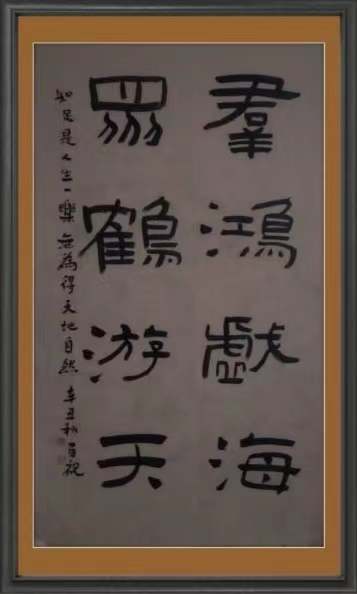 羣鴻戲海
眾鶴游天
知足是人生一樂 無為得天地自然 辛丑秋